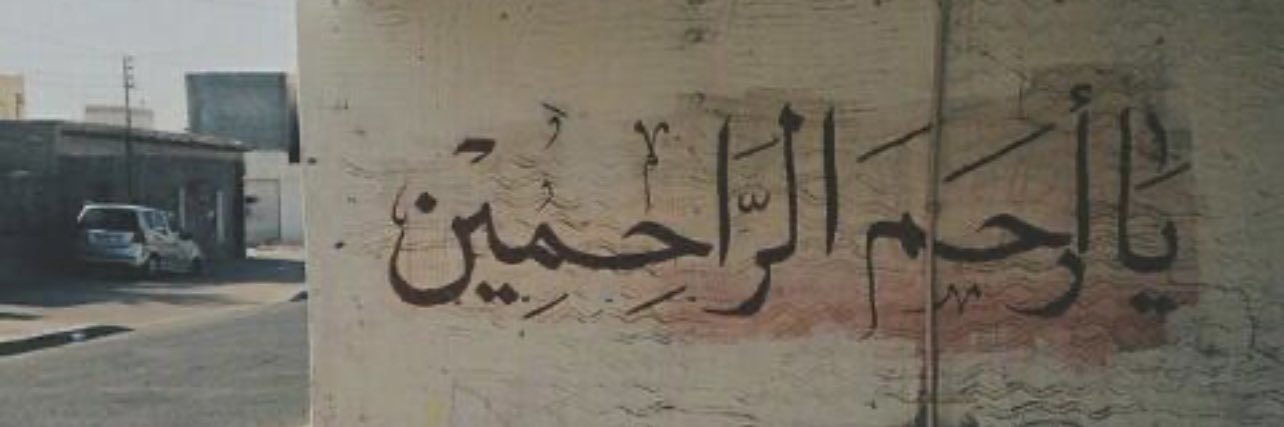 يَا أَرحَمَ الرَّاحِمِينَ